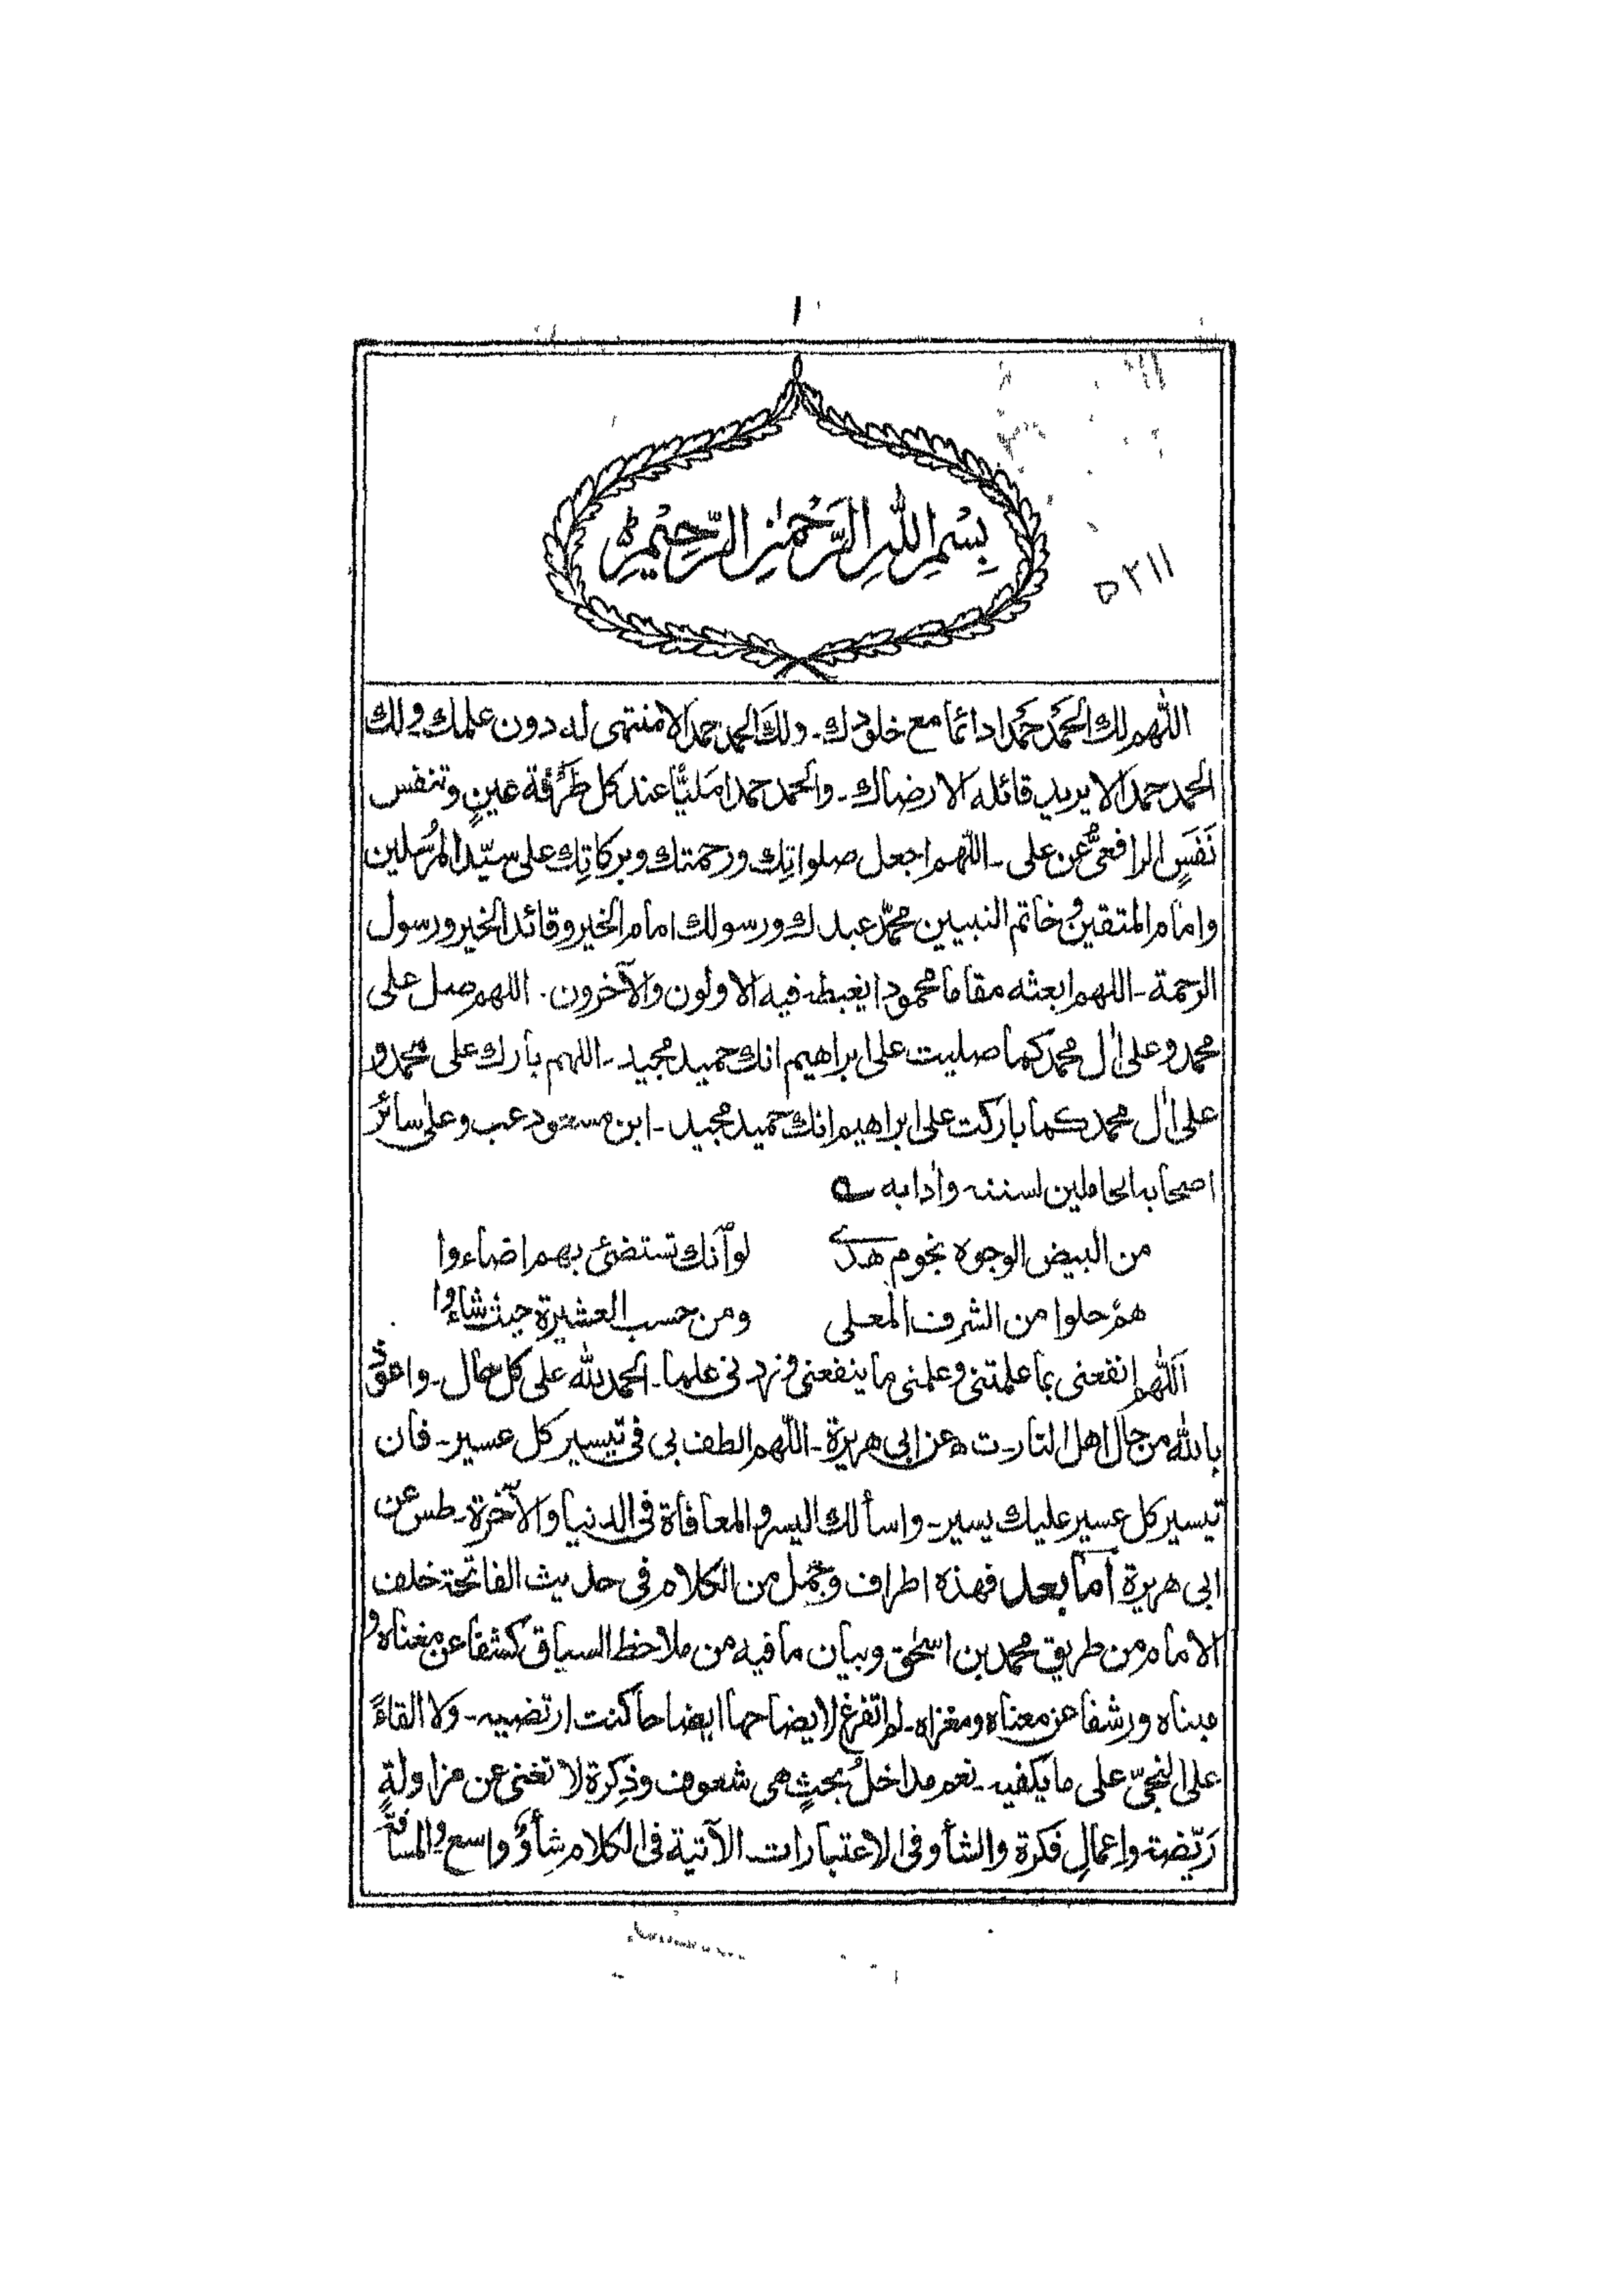 ١
بِسْمِ اللّٰهِ الرَّحْمٰنِ الرَّحِيْمِ
٥٢١١
اللّٰهم لك الحَمْد حَمْدا دائما مع خلودك ـ ولكَ الحمد حمدا لا منتهى له دون علمك ولك
الحمد حمدا لا يريد قائله الا رضاك ـ والحمد حمدا مَلِيًّا عند كل طَرْفة عينٍ وتنفس
نَفَسٍ الرافعىُّ عن على ـ اللّٰهم اجعل صلواتِك ورحمتك وبركاتِك على سيّد المرُسلين
وامام المتقين وخاتم النبيين محمّد عبدك ورسولك امام الخير وقائد الخير ورسول
الرحمة ـ اللهم ابعثه مقاما محمودا يغبطه فيه الاولون والآخرون ۔ اللهم صل على
محمد وعلى اٰل محمد كما صليت على ابراهيم انك حميد مجيد ـ اللهم بارك على محمد و
على اٰل محمد كما باركت على ابراهيم انك حميد مجيد ـ ابن مسعود عب وعلى سائر
اصحابه الحاملين لسننه واٰدابه
من البيض الوجوه نجوم هدى لو أنك تستضئ بهم اضاءوا
همُ حلوا من الشرف المعلى ومن حسب العشيرة حيث شاءُوا
اَللّٰهم انفعنى بما علمتنى وعلمنى ما ينفعنى وزدنى علما ـ الحمد للّٰه على كل حال ـ واعوذ
باللّٰه من حال اهل النار ـ ت ه عن ابى هريرة ـ اللّٰهم الطف بى فى تيسير كل عسير ـ فان
تيسير كل عسير عليك يسير ـ واسألك اليسر والمعافاة فى الدنيا والآخرة ـ طس عن
ابى هريرة اما بعد فهذه اطراف وجمل من الكلام فى حديث الفاتحة خلف
الامام من طريق محمد بن اسحٰق وبيان ما فيه من ملاحظ السياق كشفا عن مغناه و
مبناه ورشفا عن معناه ومغزاه ـ لم اتفرغ لايضاحها ايضاحا كنت ارتضيه ـ ولا القاءً
على النجىّ على ما يكفيه ـ نعم مداخلُ بحثٍ هى شعوف وذِكرة لا تغنى عن مزاولةٍ
رَيّضة واعمالِ فكرة والشأو فى الاعتبارات الآتية فى الكلام شأوٌ واسع والمسافة